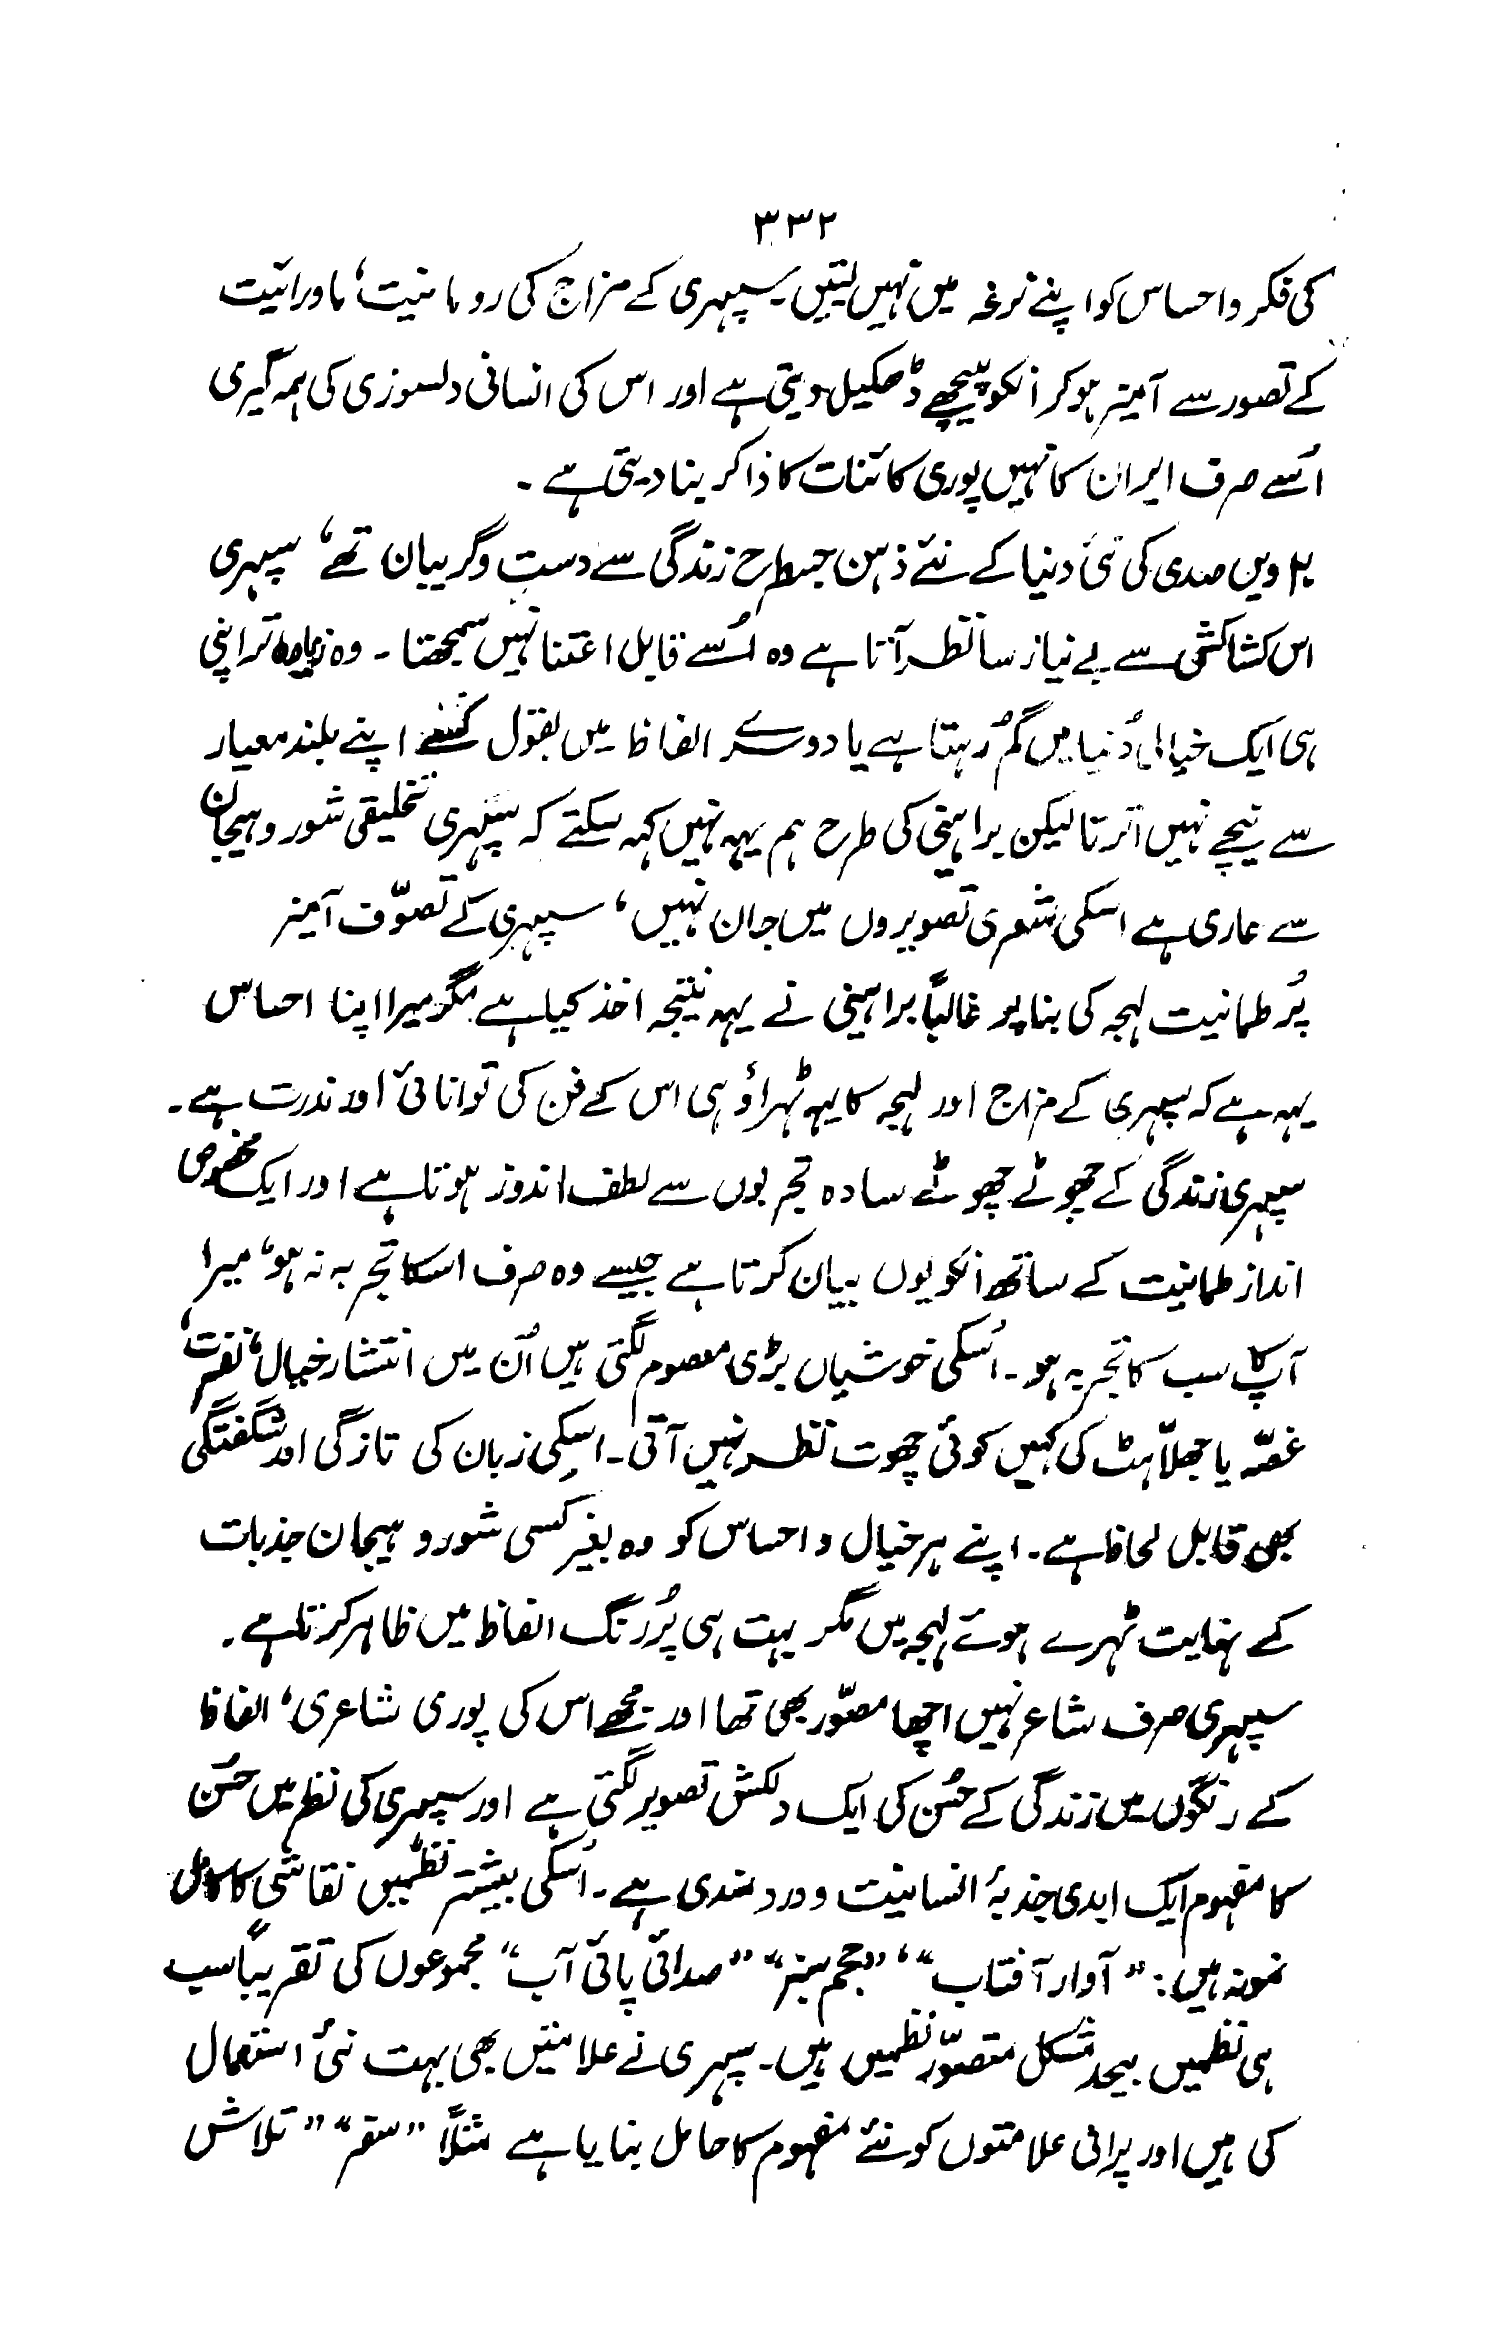 ۳۳۲
کی فکر و احساس کو اپنے نرغہ میں نہیں لیتیں۔ سپہری کے مزاج کی رومانیت، ماورائیت
کے تصور سے آمیز ہوکر انکو پیچھے ڈھکیل دیتی ہے اور اس کی انسانی دلسوزی کی ہمہ گیری
اُسے صرف ایران کا نہیں پوری کائنات کا ذاکر بنا دیتی ہے۔
۲۰ ویں صدی کی نئی دنیا کے نئے ذہن جسطرح زندگی سے دست و گریبان تھے، سپہری
اس کشاکشی سے بے نیاز سا نظر آتا ہے وہ اُسے قابل اعتنا نہیں سمجھتا۔ وہ زیادہ تر اپنی
ہی ایک خیالی دُنیا میں گُم رہتا ہے یا دوسرے الفاظ میں بقول کسے اپنے بلند معیار
سے نیچے نہیں اترتا لیکن براہینی کی طرح ہم یہہ نہیں کہہ سکتے کہ سپہری تخلیقی شور و ہیجان
سے عاری ہے اسکی شعری تصویروں میں جان نہیں، سپہری کے تصوّف آمیز
پُر طمانیت لہجہ کی بنا پر غالباً براہینی نے یہہ نتیجہ اخذ کیا ہے مگر میرا اپنا احساس
یہہ ہے کہ سپہری کے مزاج اور لہجہ کا یہہ ٹہراؤ ہی اس کے فن کی توانائی اور ندرت ہے۔
سپہری زندگی کے چھوٹے چھوٹے سادہ تجربوں سے لطف اندوز ہوتا ہے اور ایک مخصوص
انداز طمانیت کے ساتھ انکو یوں بیان کرتا ہے جیسے وہ صرف اسکا تجربہ نہ ہو، میرا
آپ کا سب کا تجربہ ہو۔ اُسکی خوشیاں بڑی معصوم لگتی ہیں اُن میں انتشار خیال، نفرت،
غصّہ یا جھلاّہٹ کی کہیں کوئی چھوت نظر نہیں آتی۔ اسکی زبان کی تازگی اور شگفتگی
بھی قابل لحاظ ہے۔ اپنے ہر خیال و احساس کو وہ بغیر کسی شور و ہیجان جذبات
کے نہایت ٹہرے ہوئے لہجہ میں مگر بہت ہی پُر رنگ الفاظ میں ظاہر کرتا ہے۔
سپہری صرف شاعر نہیں اچھا مصوّر بھی تھا اور مجھے اس کی پوری شاعری، الفاظ
کے رنگوں میں زندگی کے حُسن کی ایک دلکش تصویر لگتی ہے اور سپہری کی نظر میں حُسن
کا مفہوم ایک ابدی جذبۂ انسانیت و درد مندی ہے۔ اُسکی بیشتر نظمیں نقاشی کا کامل
نمونہ ہیں: ”آوار آفتاب“، ”حجم سبز“ ”صدائی پائی آب“ مجموعوں کی تقریباً سب
ہی نظمیں بیحد مشکل متصوّر نظمیں ہیں۔ سپہری نے علامتیں بھی بہت نئی استعمال
کی ہیں اور پرانی علامتوں کو نئے مفہوم کا حامل بنایا ہے مثلاً ”سفر“ ”تلاش